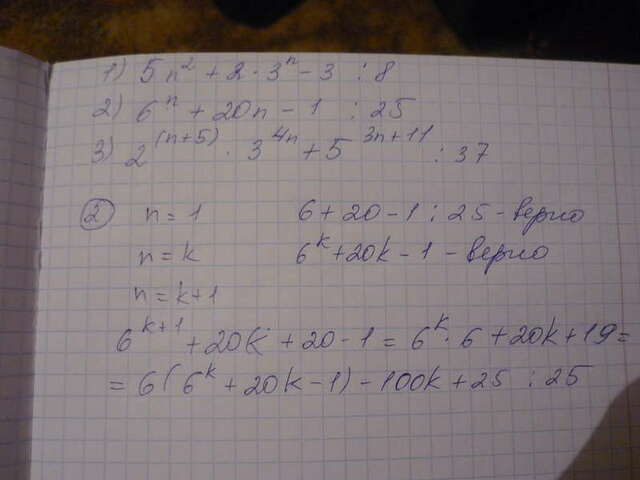 1) 5n² + 2·3ⁿ - 3 ⋮ 8
2) 6ⁿ + 20n - 1 ⋮ 25
3) 2⁽ⁿ⁺⁵⁾ · 3⁴ⁿ + 5³ⁿ⁺¹¹ ⋮ 37
② n = 1 6 + 20 - 1 ⋮ 25 - верно
n = k 6ᵏ + 20k - 1 - верно
n = k+1
6ᵏ⁺¹ + 20k + 20 - 1 = 6ᵏ · 6 + 20k + 19 =
= 6(6ᵏ + 20k - 1) - 100k + 25 ⋮ 25